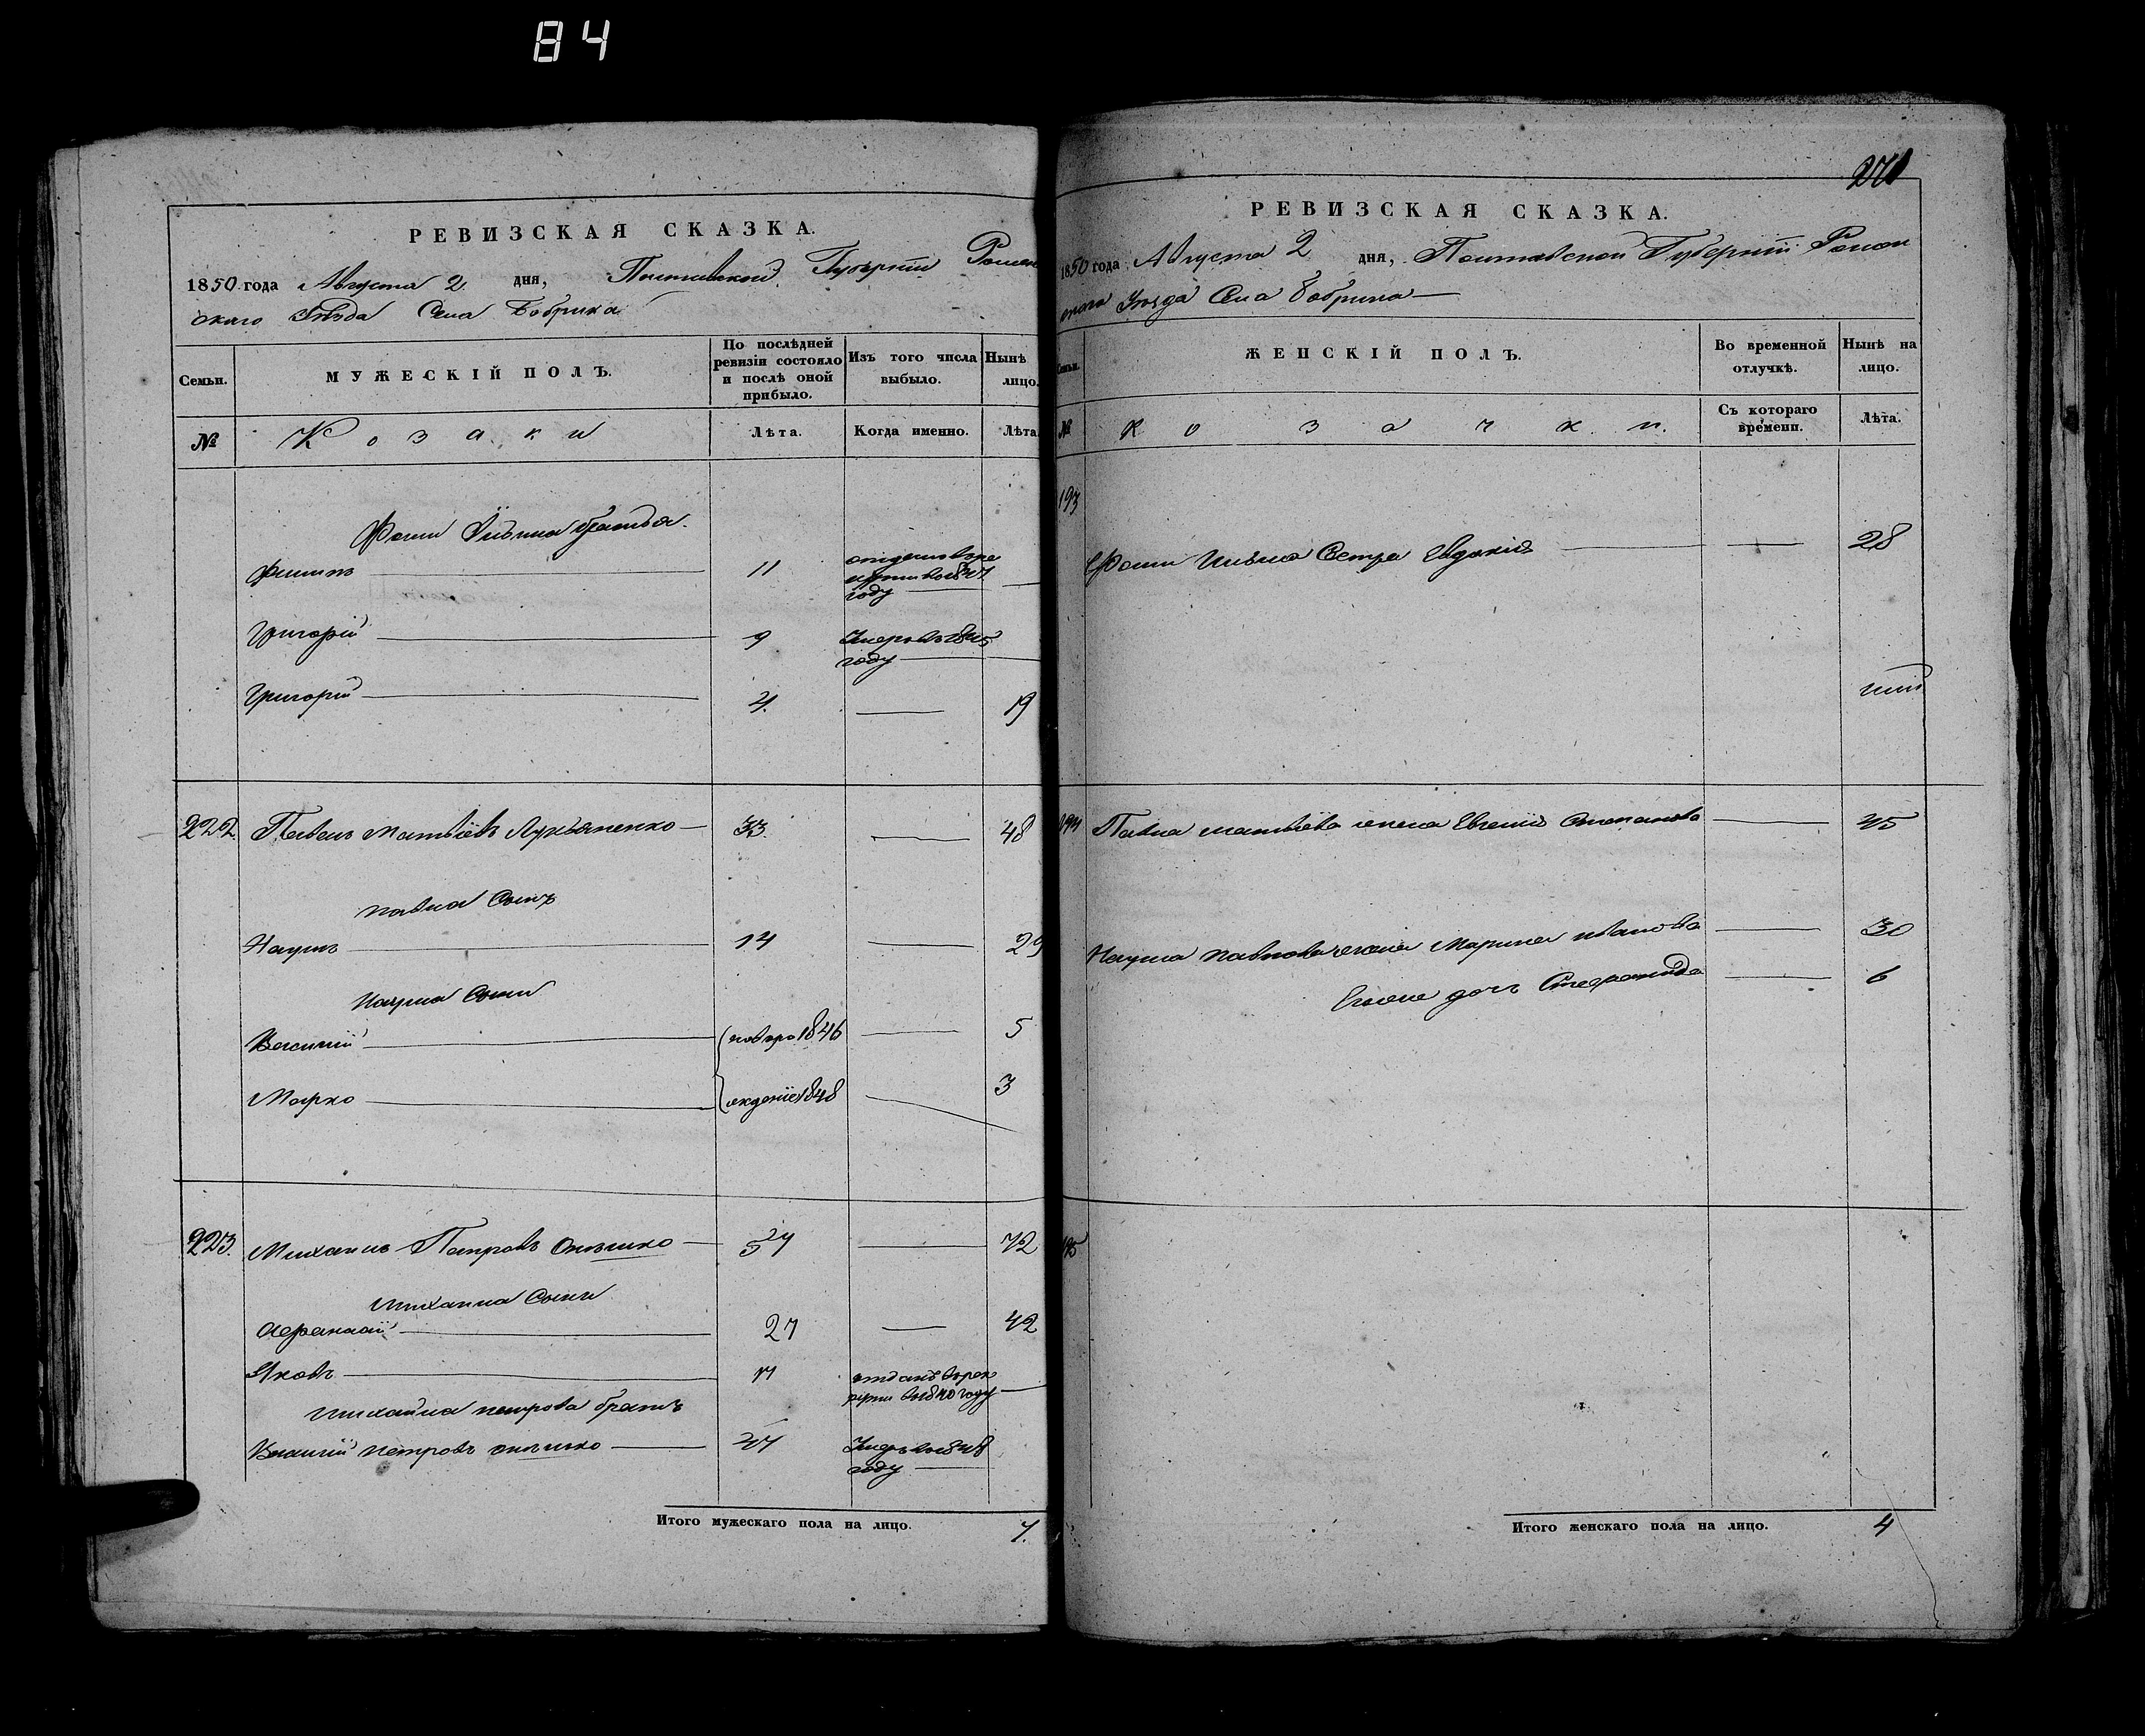 84
РЕВИЗСКАЯ СКАЗКА.
1850 года Августа 2 дня, Полтавской Губернїи Ромен
скаго Уѣзда Села Бобрика
Семьи.
МУЖЕСКІЙ ПОЛЪ.
По послѣдней ревизіи состояло и послѣ оной прибыло.
Изъ того числа выбыло.
Нынѣ лицо.
№
Козаки
Лѣта.
Когда именно.
Лѣта
Фомы Ильина братья.
Филипъ 11 отданъ въ ре
крути въ 1841
году
Григорій 9 Умеръ въ 1845
году
Григорій 4. 19
222 Павелъ Матвѣевъ Лукьяненко 33. 48
Павла Сынъ
Наумъ 14 29
Наума Сыны
Василій новоро 1846 5
Марко жденіе 1848 3
223. Михаилъ Петровъ Онышко 57 72
Михаила Сыны
Афанасій 27 42
Яковъ 17 отданъ в рек
рути въ 1840 году
Михайла петрова братъ
Василій петровъ онышко 47 Умеръ въ 1848
году
Итого мужескаго пола на лицо. 7.
271
РЕВИЗСКАЯ СКАЗКА.
1850 года Августа 2 дня, Полтавской Губерніи Ромен
скаго Уѣзда Села Бобрика
Семьи.
ЖЕНСКІЙ ПОЛЪ.
Во временной отлучкѣ.
Нынѣ на лицо.
№
Козачки.
Съ котораго времени.
Лѣта.
193
Фомы Ильина Сестра Евдокія 28
194 Павла матвѣева жена Евгенія Степанова 45
Наума павлова жена Марина иванова 30
Его же дочь Степанида 6
195
Итого женскаго пола на лицо. 4